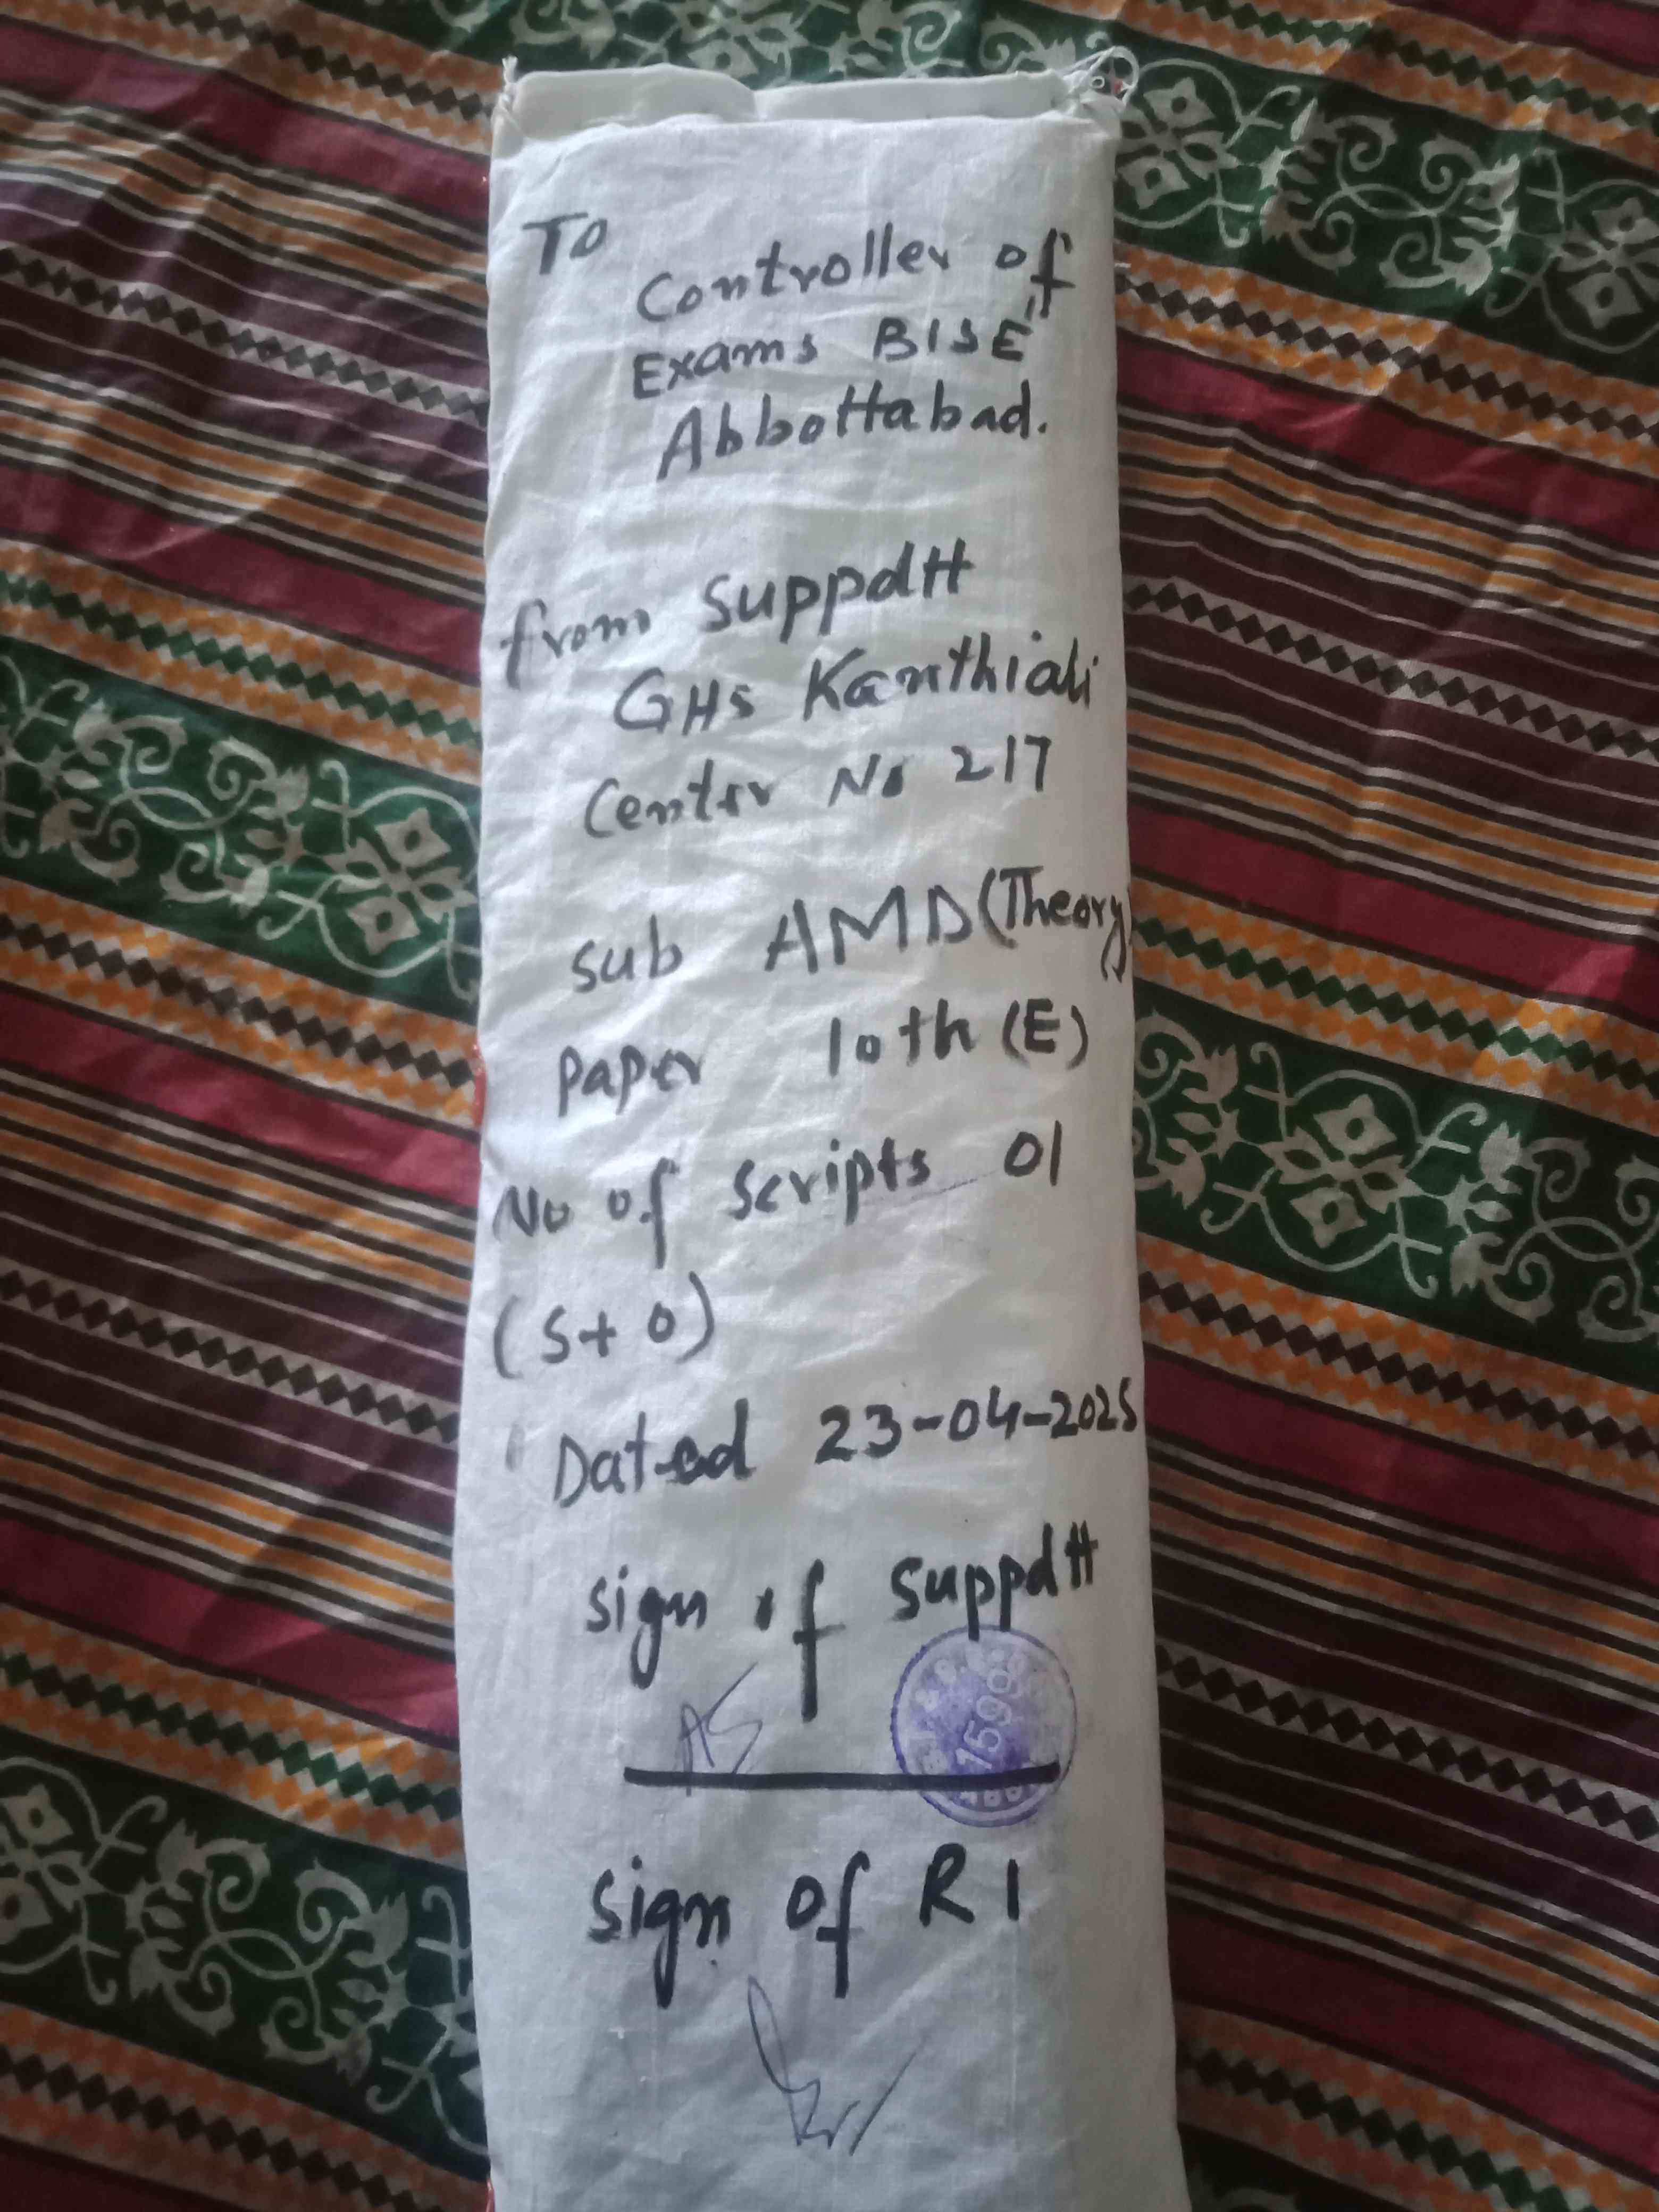 To
Controller of
Exams BISE
Abbottabad.
from Suppdtt
GHS Kanthiali
Center No 217
Sub AMD (Theory)
Paper 10th (E)
No of Scripts 01
(S+O)
Dated 23-04-2025
Sign of Suppdtt
AS
1599
Sign of RI